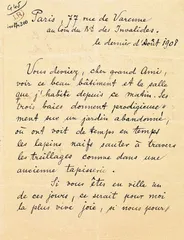 Paris, 77 rue de Varenne
au coin du Bd des Invalides.
le dernier d'Août 1908
Vous devriez, cher grand Ami,
voir ce beau bâtiment et la salle
que j'habite depuis ce matin. Ses
trois baies donnent prodigieuse-
ment sur un jardin abandonné,
où on voit de temps en temps
les lapins naïfs sauter à travers
les treillages comme dans une
ancienne tapisserie.
Si vous êtes en ville un
de ces jours, ce serait pour moi
la plus vive joie, si nous pour